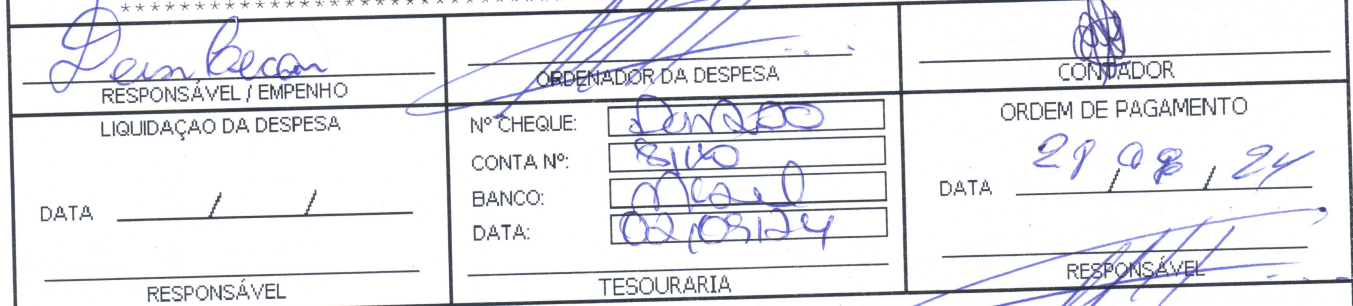 *****************************
RESPONSÁVEL / EMPENHO
ORDENADOR DA DESPESA
CONTADOR
LIQUIDAÇAO DA DESPESA
DATA / /
RESPONSÁVEL
Nº CHEQUE:
CONTA Nº:
BANCO:
DATA: 02/09/24
TESOURARIA
ORDEM DE PAGAMENTO
DATA / 08 / 24
RESPONSÁVEL